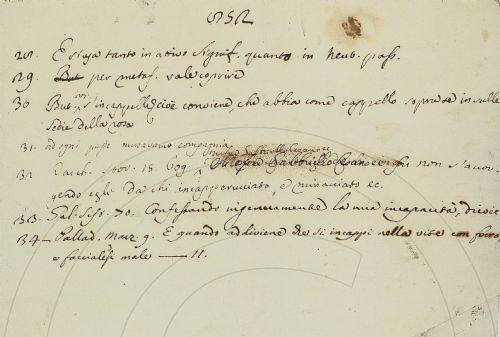 252
28. E si usa tanto in attivo signif. quanto in neut. pass.
29. But per metaf. vale coprire
30 But ivi s'incappelle cioè conviene, che abbia come cappello sopra se in sulle
sedie della rosa
31. ad ogni passo mutavamo compagnia
32. Varch. stor. 15. 609 non s'accor-
gendo egli da chi incappucciato, o minacciato ec.
33. Gal. Sist. 70. Confessando ingenuamente la mia incapacità, dico
34 – Pallad. Marz. 9. E quando addiviene che si incappi nella vite con ferro
o facciale male — 11.